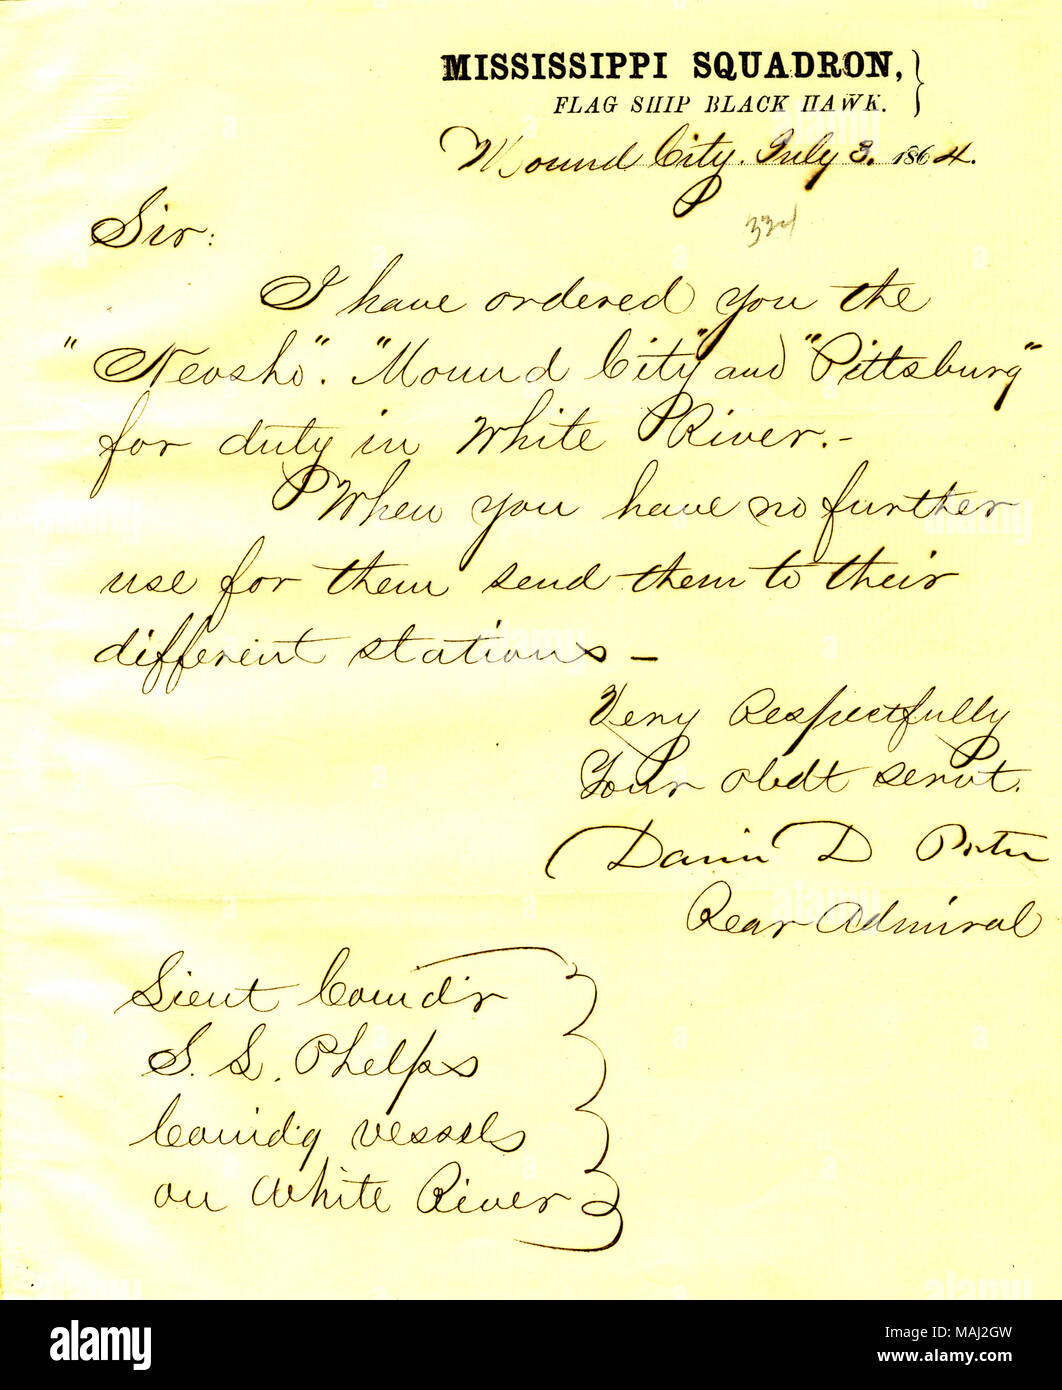 MISSISSIPPI SQUADRON,
FLAG SHIP BLACK HAWK.
Mound City. July 3. 1864.
334
Sir:
I have ordered you the
"Neosho". "Mound City" and "Pittsburg"
for duty in White River.-
When you have no further
use for them send them to their
different stations -
Very Respectfully
Your obdt servt.
David D Porter
Rear Admiral
Lieut Comd'r
S. L. Phelps
Comd'g vessels
on White River
alamy
Image ID: MAJ2GW
www.alamy.com